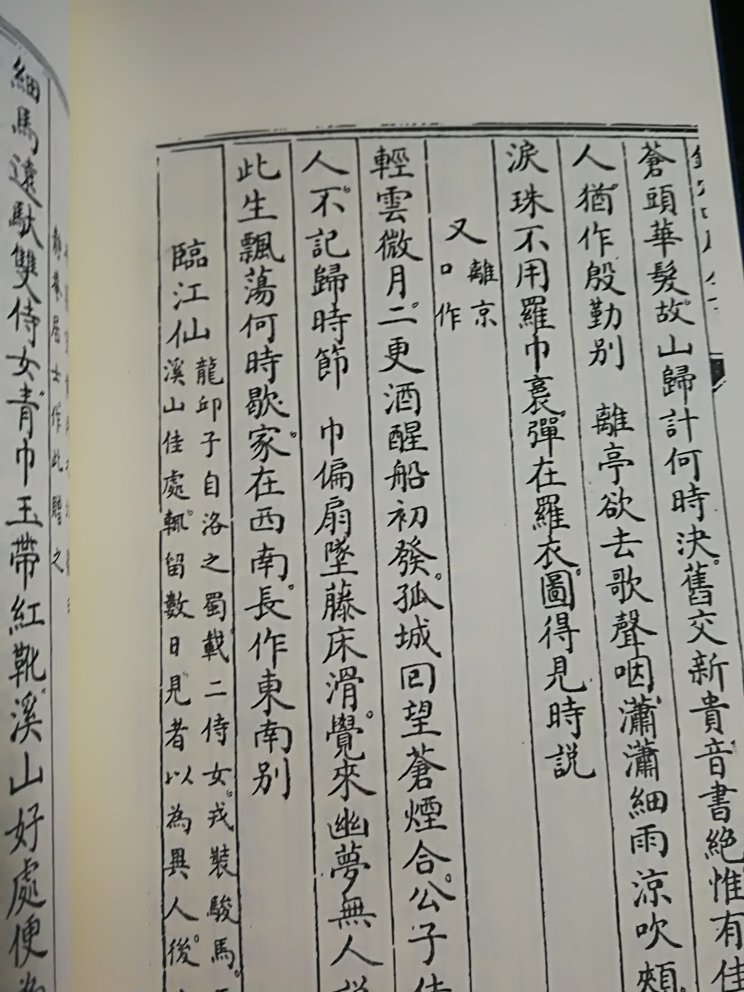 蒼頭華髮。故山歸計何時決。舊交新貴。音書絕。惟有佳
人。猶作殷勤別　離亭欲去歌聲咽。瀟瀟細雨涼吹頰。
淚珠不用羅巾裛。彈在羅衣。圖得見時説
又
離京
口作
輕雲微月。二更酒醒船初發。孤城回望蒼煙合。公子佳
人。不記歸時節　巾偏扇墜藤床滑。覺來幽夢無人説
此生飄蕩何時歇。家在西南。長作東南别
臨江仙
龍邱子自洛之蜀。載二侍女。戎裝駿馬。
溪山佳處。輒留數日。見者以為異人。後
居士作此贈之
細馬遠馱雙侍女。青巾玉帶紅靴。溪山好處便為